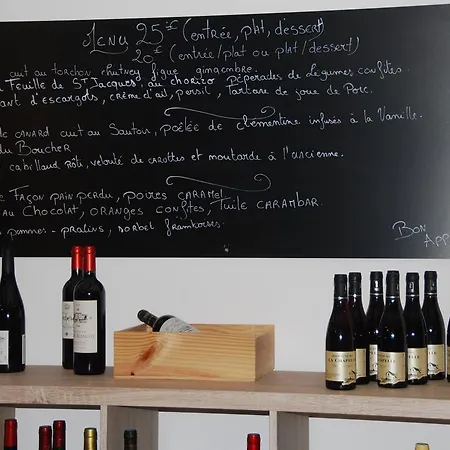 Menu 25€ (entrée, plat, dessert)
20€ (entrée/plat ou plat/dessert)
cuit au torchon chutney figue gingembre.
Feuille de ST Jacques, au chorizo, pipérades de légumes confites.
d'escargots, crème d'ail, persil, Tartare de joue de Porc.
canard cuit au Sautoir, poêlée de clémentine infusés à la Vanille.
du Boucher
cabillaud Rôti, velouté de carottes et moutarde à l'ancienne.
Façon pain perdu, poires caramel
au Chocolat, oranges confites, Tuile CARAMBAR.
pommes - pralins, sorbet framboises.
Bon
App